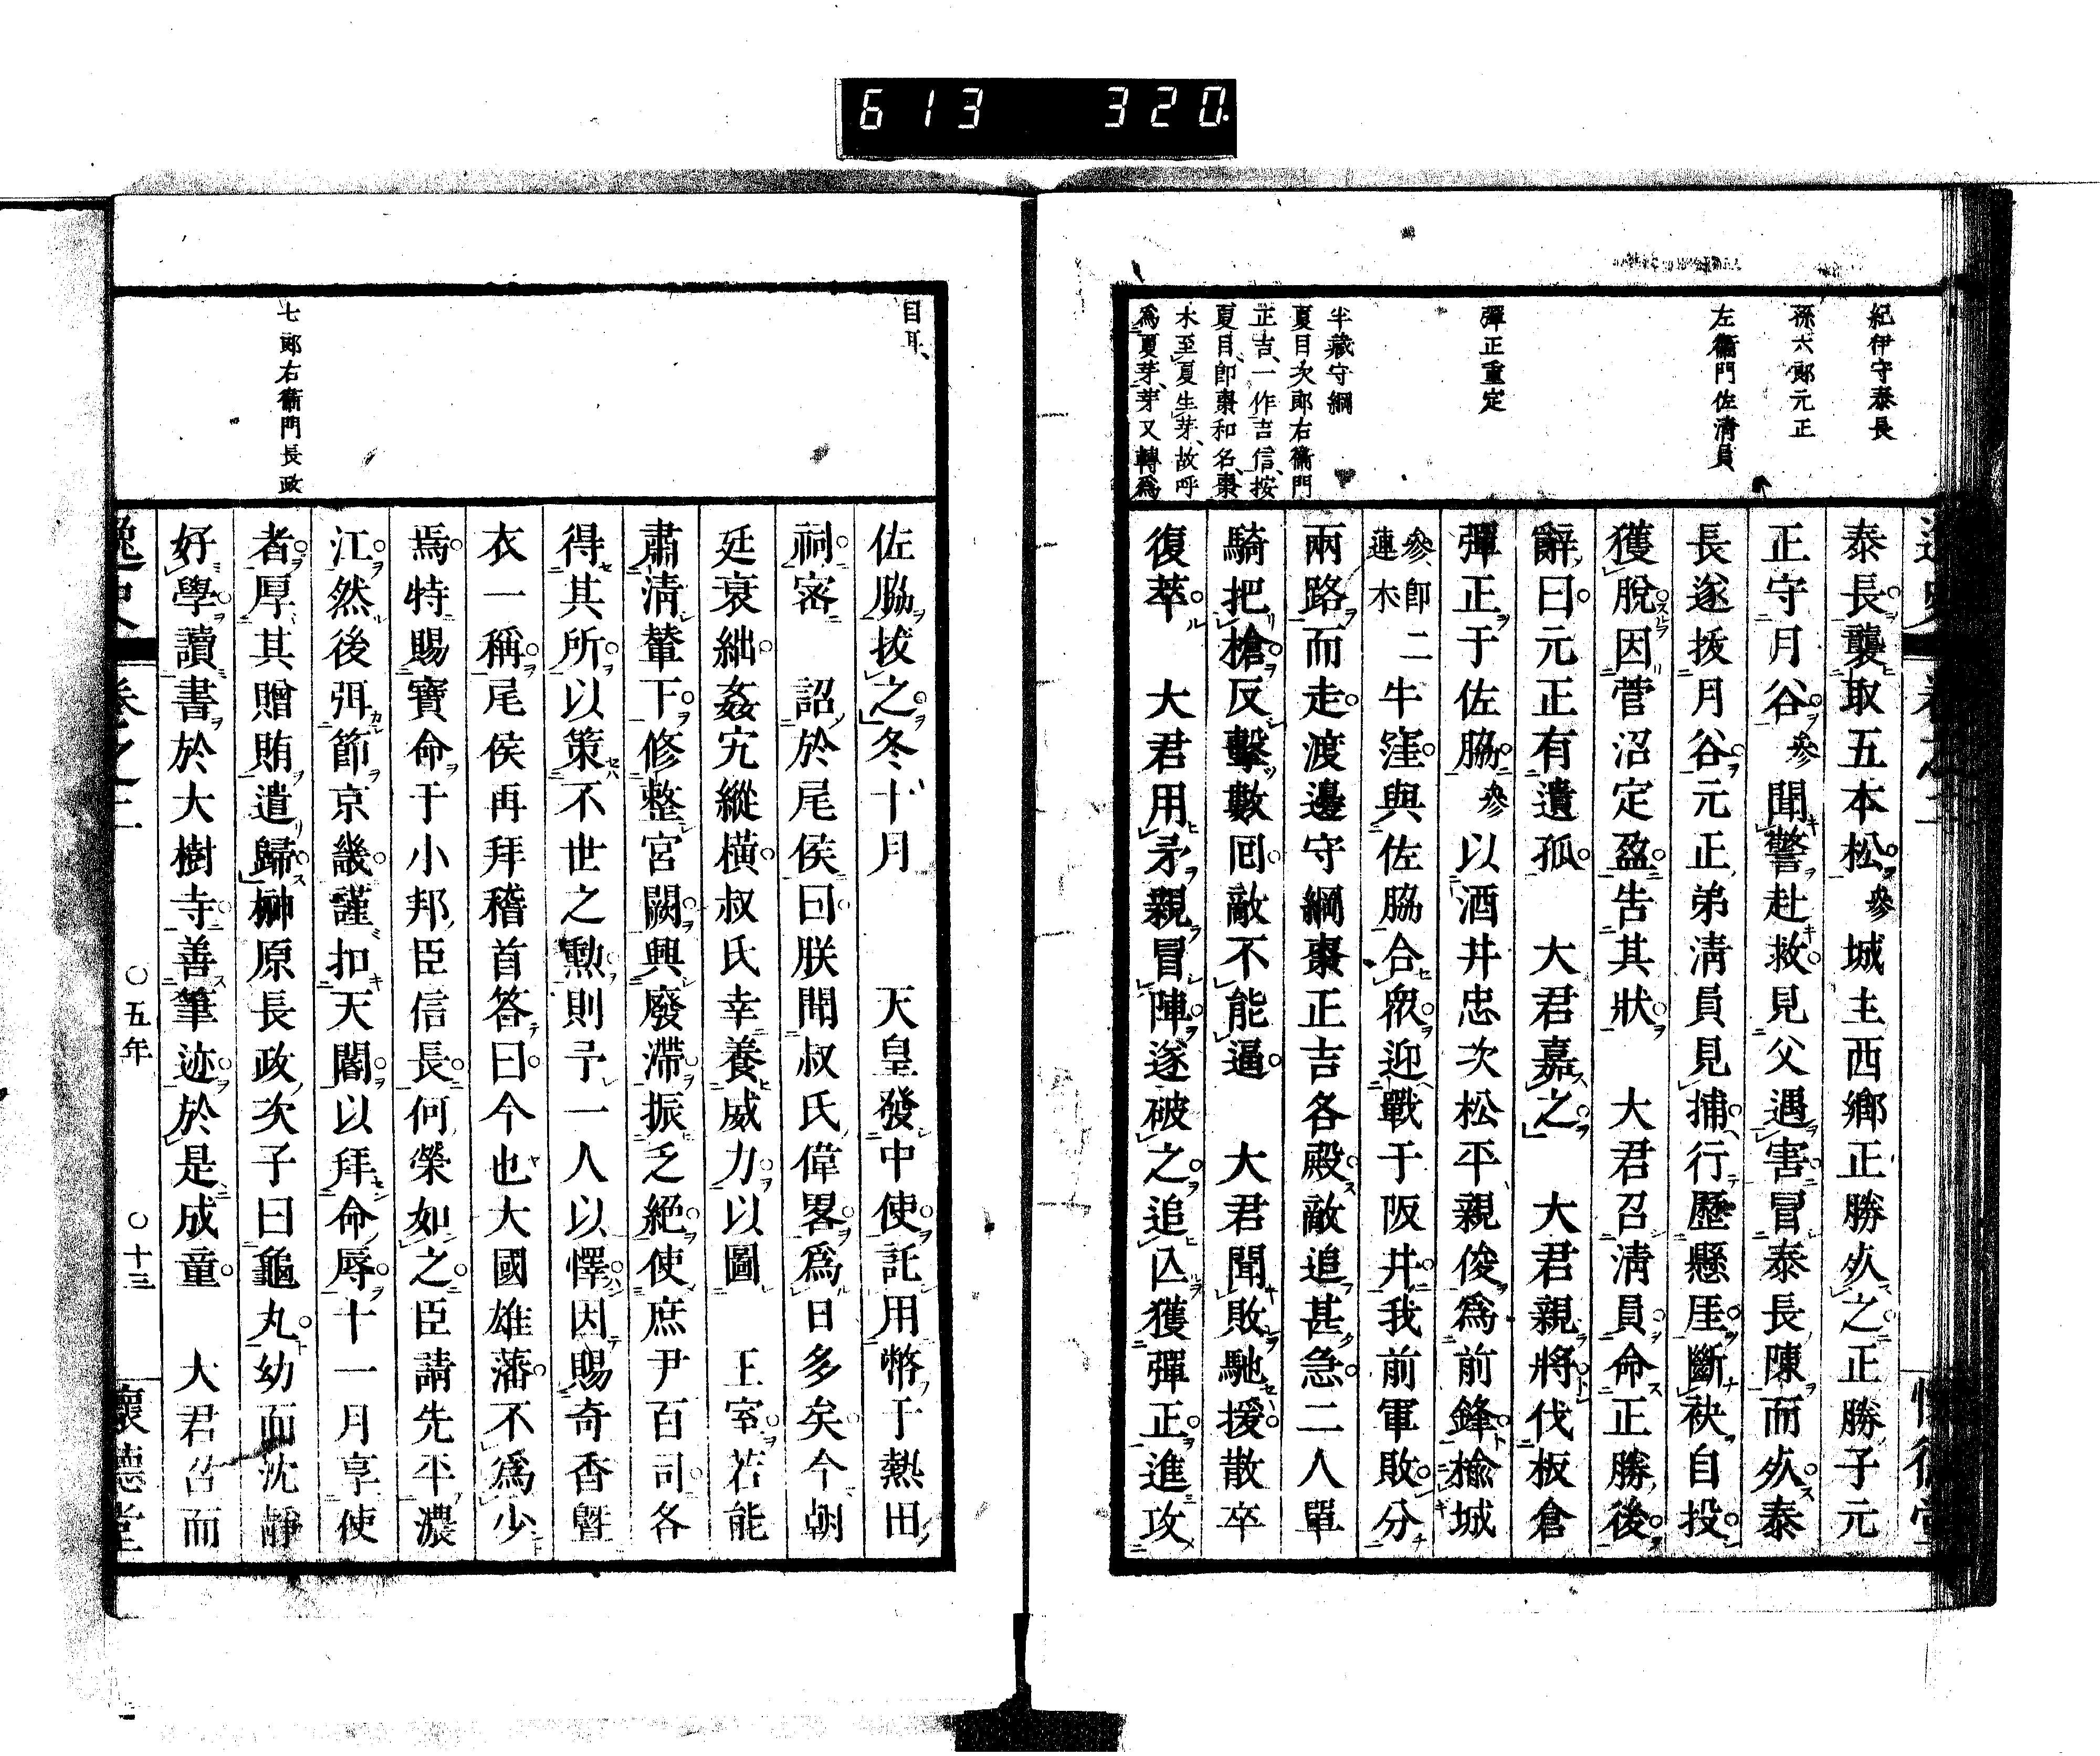 613 320
紀伊守泰長
孫六郎元正
左衞門佐清員
彈正重定
半藏守綱
夏目次郎右衞門
正吉、一作吉信、按
夏目、即棗和名、棗
木至夏生芽、故呼
爲夏芽、芽又轉爲
泰長襲取五本松參城主西鄉正勝㱔之正勝子元
正守月谷參聞警赴救見父遇害冒泰長陳而㱔泰
長遂拔月谷元正弟淸員見捕行歷懸厓斷袂自投
獲脫因菅沼定盈告其狀 大君召淸員命正勝後
辭曰元正有遺孤 大君嘉之 大君親將伐板倉
彈正于佐脇參以酒井忠次松平親俊爲前鋒檢城
參即連木二牛窪與佐脇合衆迎戰于阪井我前軍敗分
兩路而走渡邊守綱棗正吉各殿敵追甚急二人單
騎把槍反擊數回敵不能逼 大君聞敗馳援散卒
復萃 大君用矛親冒陣遂破之追亾獲彈正進攻
目耳、
七郎右衞門長政
佐脇拔之冬十月 天皇發中使託用幣于熱田
祠密 詔於尾侯曰朕聞叔氏偉畧爲日多矣今朝
廷衰絀姦宄縱橫叔氏幸養威力以圖 王室若能
肅淸輦下修整宮闕興廢滯振乏絕使庶尹百司各
得其所以策不世之勲則予一人以懌因賜奇香曁
衣一稱尾侯再拜稽首答曰今也大國雄藩不爲少
焉特賜寶命于小邦臣信長何榮如之臣請先平濃
江然後弭節京畿謹扣天閽以拜命辱十一月享使
者厚其贈賄遣歸榊原長政次子曰龜丸幼而沈靜
好學讀書於大樹寺善筆迹於是成童 大君召而
逸史 卷之二 〇五年 〇十三 懷德堂